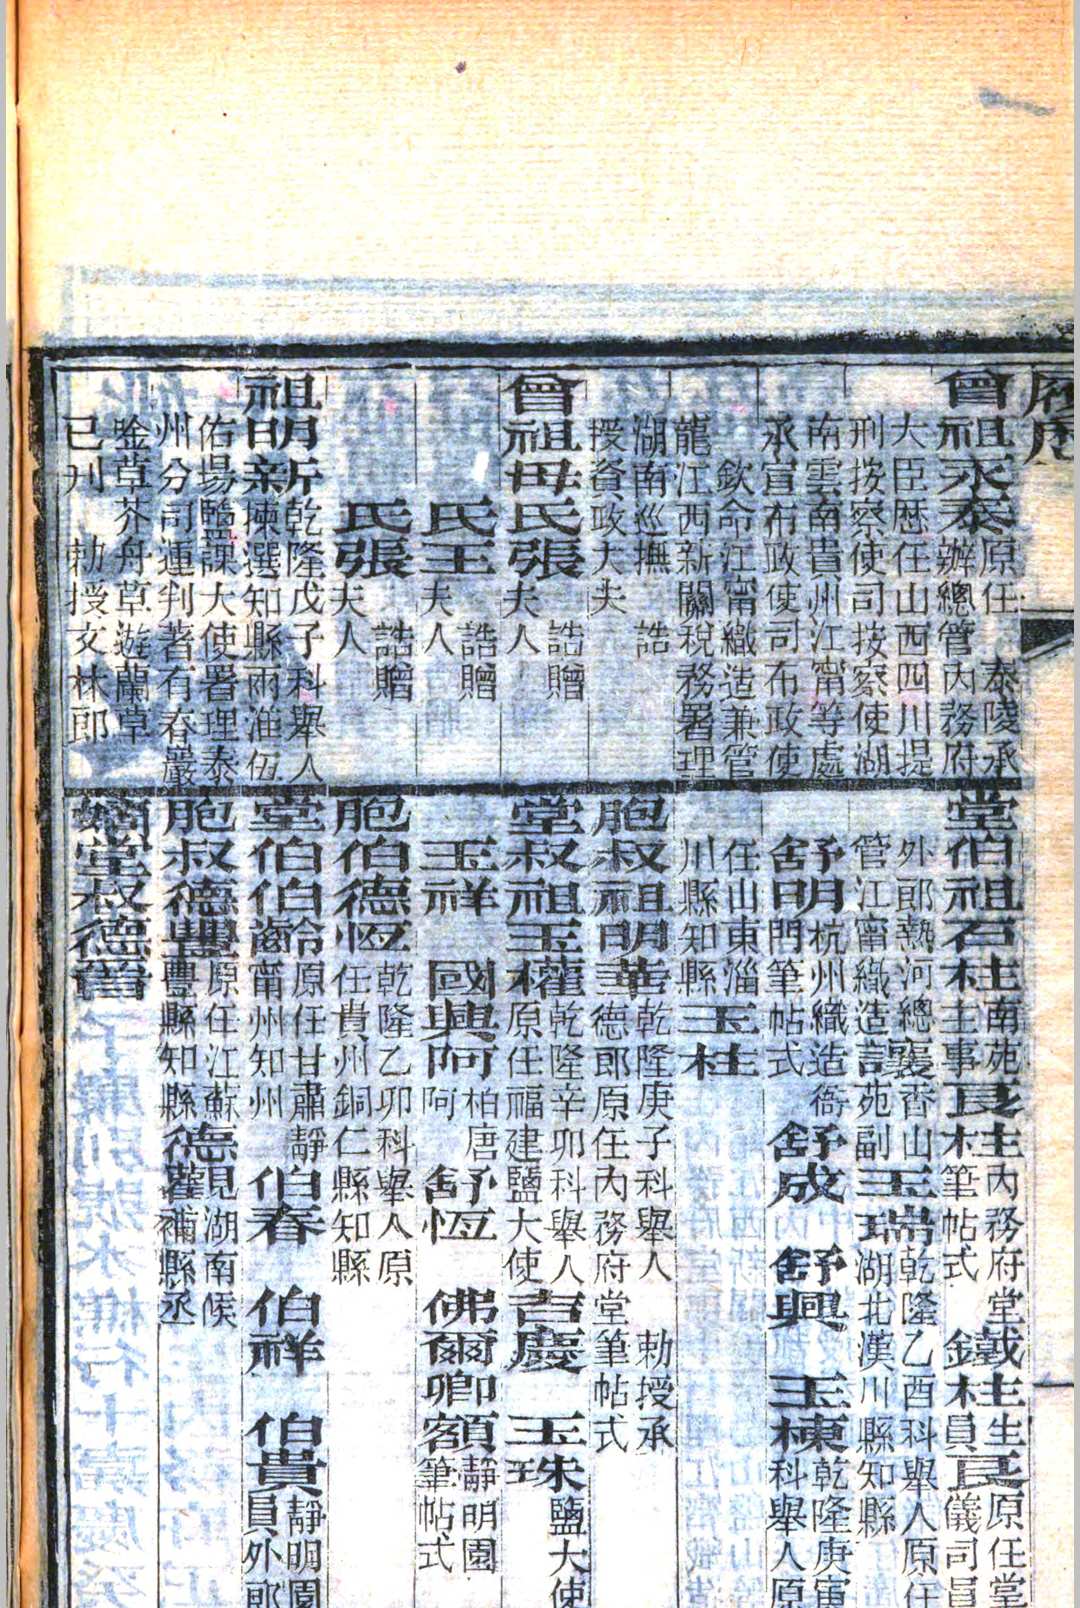 履歷
曾祖永泰 原任 泰陵承
辦總管內務府
大臣歷任山西四川提
刑按察使司按察使湖
南雲南貴州江甯等處
承宣布政使司布政使
欽命江甯織造兼管
龍江西新關稅務署理
湖南巡撫 誥
授資政大夫
曾祖母氏張 誥贈
夫人
氏王 誥贈
夫人
氏張 誥贈
夫人
祖明新 乾隆戊子科舉人
揀選知縣兩淮伍
佑場鹽課大使署理泰
州分司運判著有春巖
唫草芥舟草遊蘭草
已刊 勅授文林郎
堂伯祖石柱 南苑
主事 良柱 內務府堂
筆帖式 鐵柱 生 原任堂
員 儀司員
外郎熱河總
管 香山
玉瑞 乾隆乙酉科舉人原任
湖北漢川縣知縣
江甯織造
苑副
舒明 杭州織造衙
門筆帖式 舒成 舒興 玉棟 乾隆庚寅
科舉人原
任山東淄
川縣知縣 玉柱
胞叔祖明華 乾隆庚子科舉人 勅授承
德郎原任內務府堂筆帖式
堂叔祖玉權 乾隆辛卯科舉人
原任福建鹽大使 吉慶 玉珠 鹽大使
玉祥 國興阿 柏唐
阿 舒恆 佛爾卿額 靜明園
筆帖式
胞伯德恆 乾隆乙卯科舉人原
任貴州銅仁縣知縣
堂伯伯齡 原任甘肅靜
甯州知州 伯春 伯祥 伯貴 靜明園
員外郎
胞叔德豐 原任江蘇
豐縣知縣 湖南候
補縣丞
嫡堂叔德